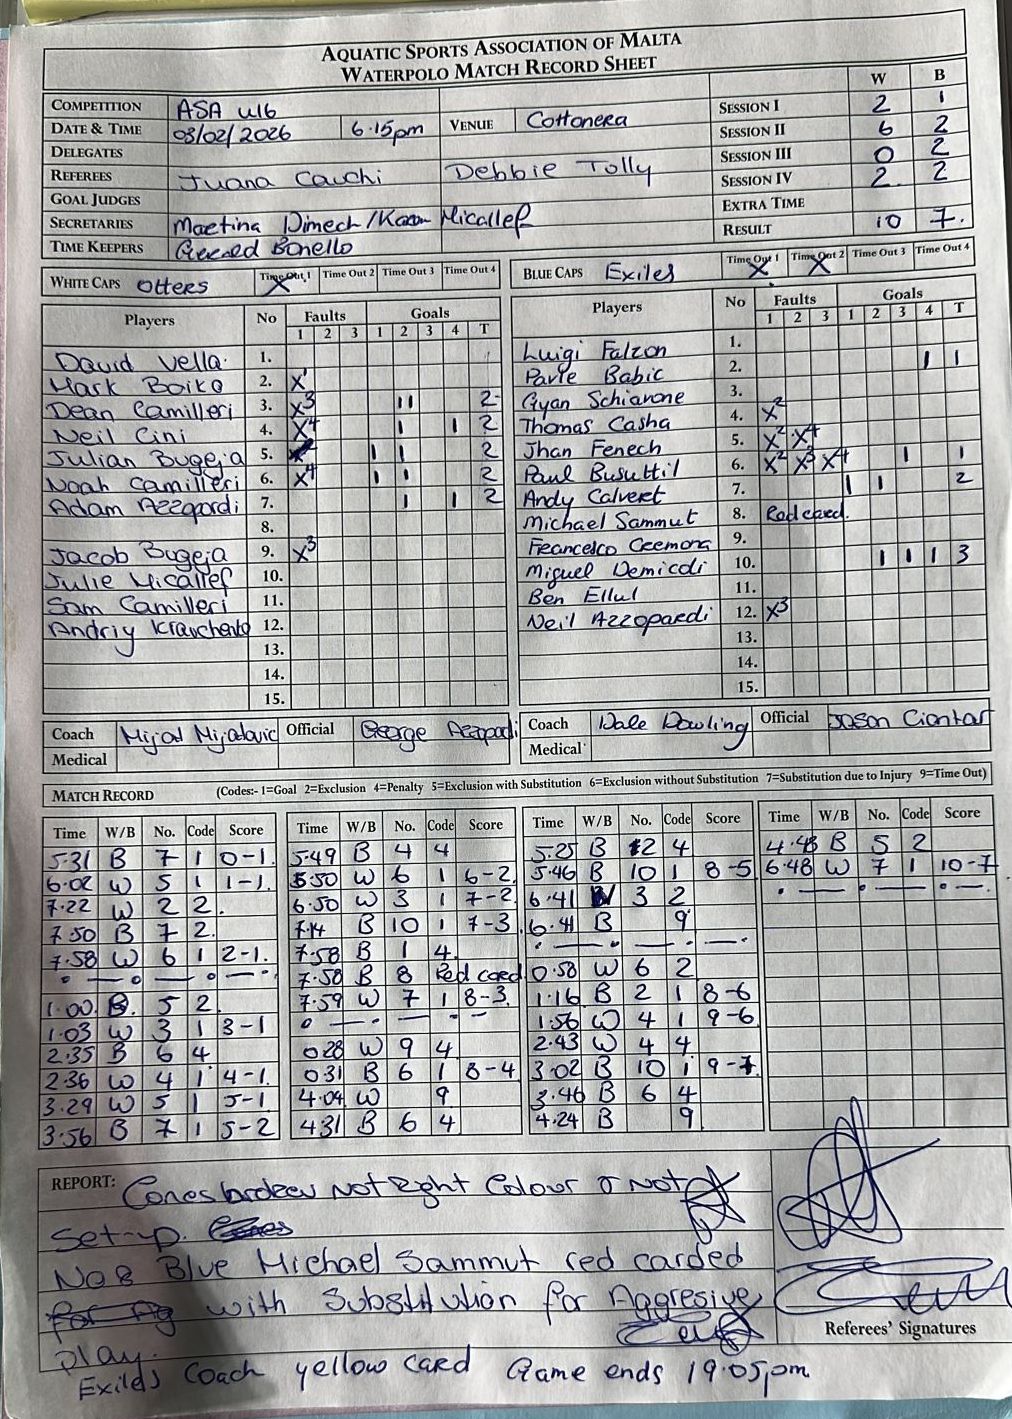 AQUATIC SPORTS ASSOCIATION OF MALTA
WATERPOLO MATCH RECORD SHEET
W B
COMPETITION ASA u16 SESSION I 2 1
DATE & TIME 03/02/2026 6.15pm VENUE Cottonera SESSION II 6 2
DELEGATES SESSION III 0 2
REFEREES Juana Cauchi Debbie Tolly SESSION IV 2 2
GOAL JUDGES EXTRA TIME
SECRETARIES Maetina Dimech/Karen Micallef RESULT 10 7.
TIME KEEPERS Gerard Bonello
WHITE CAPS Otters Time Out 1 X Time Out 2 Time Out 3 Time Out 4
Players No Faults Goals
1 2 3 1 2 3 4 T
David Vella. 1.
Mark Boiko 2. X1
Dean Camilleri 3. X3 11 2
Neil Cini 4. X4 1 1 2
Julian Bugeja 5. 1 1 2
Noah Camilleri 6. X4 1 1 2
Adam Azzopardi 7. 1 1 2
8.
Jacob Bugeja 9. X3
Julie Micallef 10.
Sam Camilleri 11.
Andriy Kravchenko 12.
13.
14.
15.
Coach Mijat Mijatovic Official George Azzopardi
Medical
BLUE CAPS Exiles Time Out 1 X Time Out 2 X Time Out 3 Time Out 4
Players No Faults Goals
1 2 3 1 2 3 4 T
Luigi Falzon 1.
Pavle Babic 2. 1 1
Gyan Schiavone 3.
Thomas Casha 4. X2
Jhan Fenech 5. X2 X4
Paul Busuttil 6. X2 X3 X4 1 1
Andy Calvert 7. 1 1 2
Michael Sammut 8. Red card.
Francesco Cremona 9.
Miguel Demicoli 10. 1 1 1 3
Ben Ellul 11.
Neil Azzopardi 12. X3
13.
14.
15.
Coach Dale Dowling Official Jason Ciantar
Medical
MATCH RECORD (Codes:- 1=Goal 2=Exclusion 4=Penalty 5=Exclusion with Substitution 6=Exclusion without Substitution 7=Substitution due to Injury 9=Time Out)
Time W/B No. Code Score
5.31 B 7 1 0-1.
6.02 W 5 1 1-1.
7.22 W 2 2.
7.50 B 7 2.
7.58 W 6 1 2-1.
1.00 B. 5 2
1.03 W 3 1 3-1
2.35 B 6 4
2.36 W 4 1 4-1.
3.29 W 5 1 5-1
3.56 B 7 1 5-2
Time W/B No. Code Score
5.49 B 4 4
5.50 W 6 1 6-2.
6.50 W 3 1 7-2.
7.14 B 10 1 7-3
7.58 B 1 4.
7.58 B 8 Red card
7.59 W 7 1 8-3.
0.28 W 9 4
0.31 B 6 1 8-4
4.04 W 9
4.31 B 6 4
Time W/B No. Code Score
5.25 B 12 4
5.46 B 10 1 8-5
6.41 W 3 2
6.41 B 9
0.58 W 6 2
1.16 B 2 1 8-6
1.56 W 4 1 9-6
2.43 W 4 4
3.02 B 10 1 9-7
3.46 B 6 4
4.24 B 9
Time W/B No. Code Score
4.48 B 5 2
6.48 W 7 1 10-7
REPORT: Cones borders Not Right Colour or Not
Set-up.
No 8 Blue Michael Sammut red carded
with Substitution for Aggresive
play.
Exiles Coach yellow card Game ends 19.05pm
Referees' Signatures